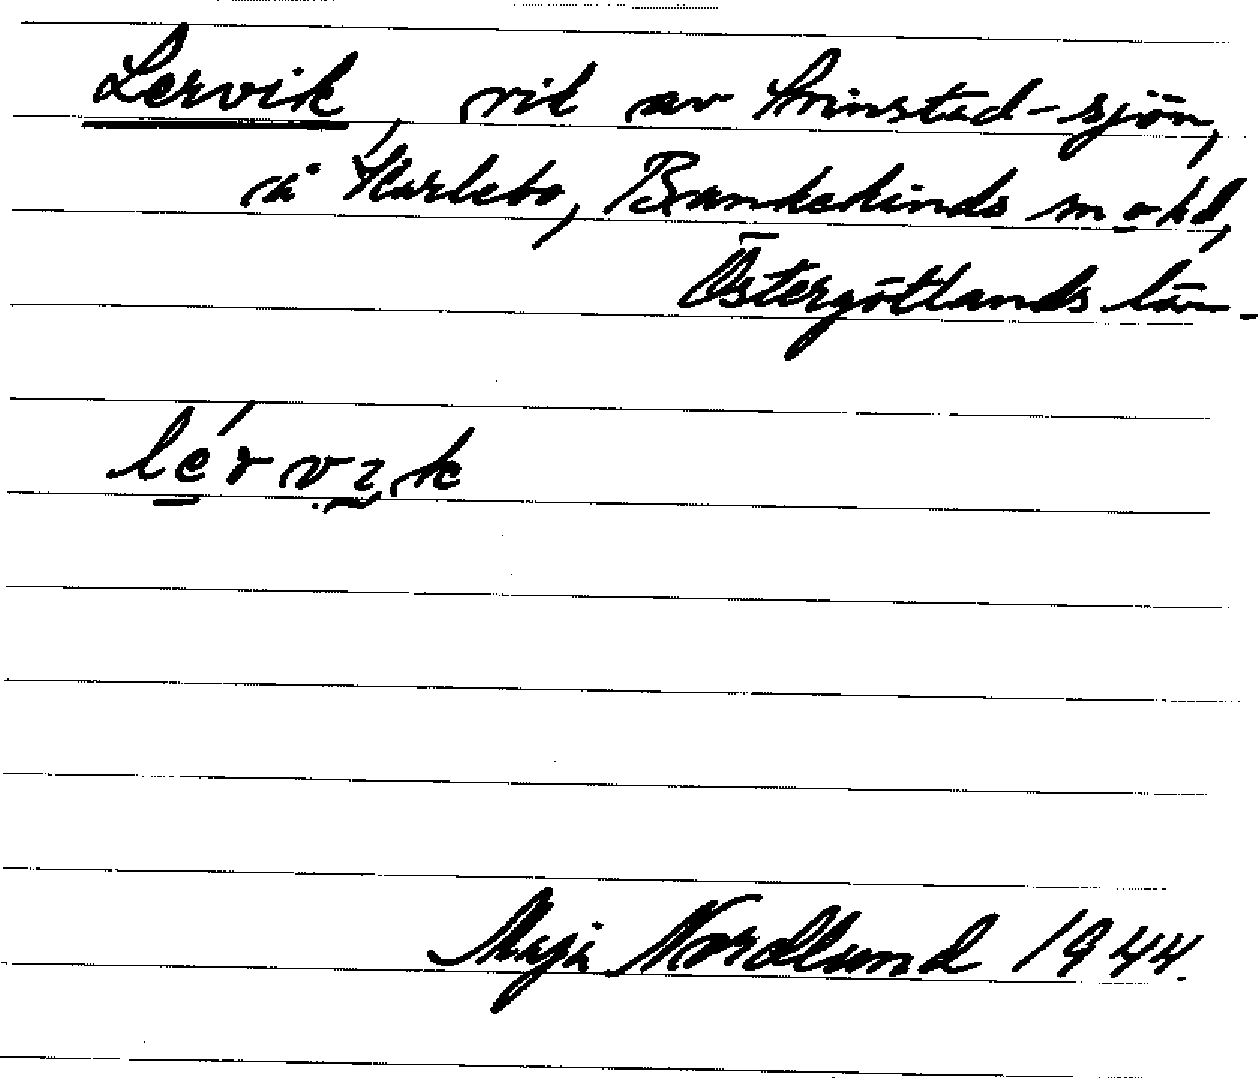 Lervik, vik av Ärinstad-sjön,
å Karlebo, Bankekinds sn o hd,
Östergötlands län.
lérvik
Maja Nordlund 1944.